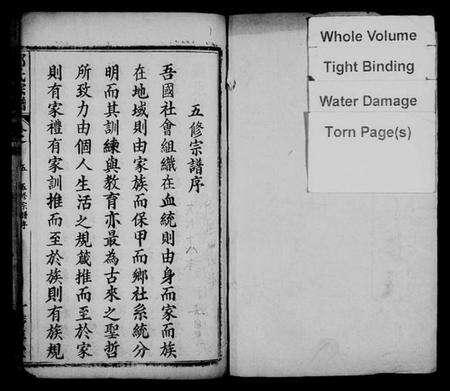 五修宗譜序
吾國社會組織在血統則由身而家而族
在地域則由家族而保甲而鄉社系統分
明而其訓練與教育亦最為古來之聖哲
所致力由個人生活之規箴推而至於家
則有家禮有家訓推而至於族則有族規
Whole Volume
Tight Binding
Water Damage
Torn Page(s)